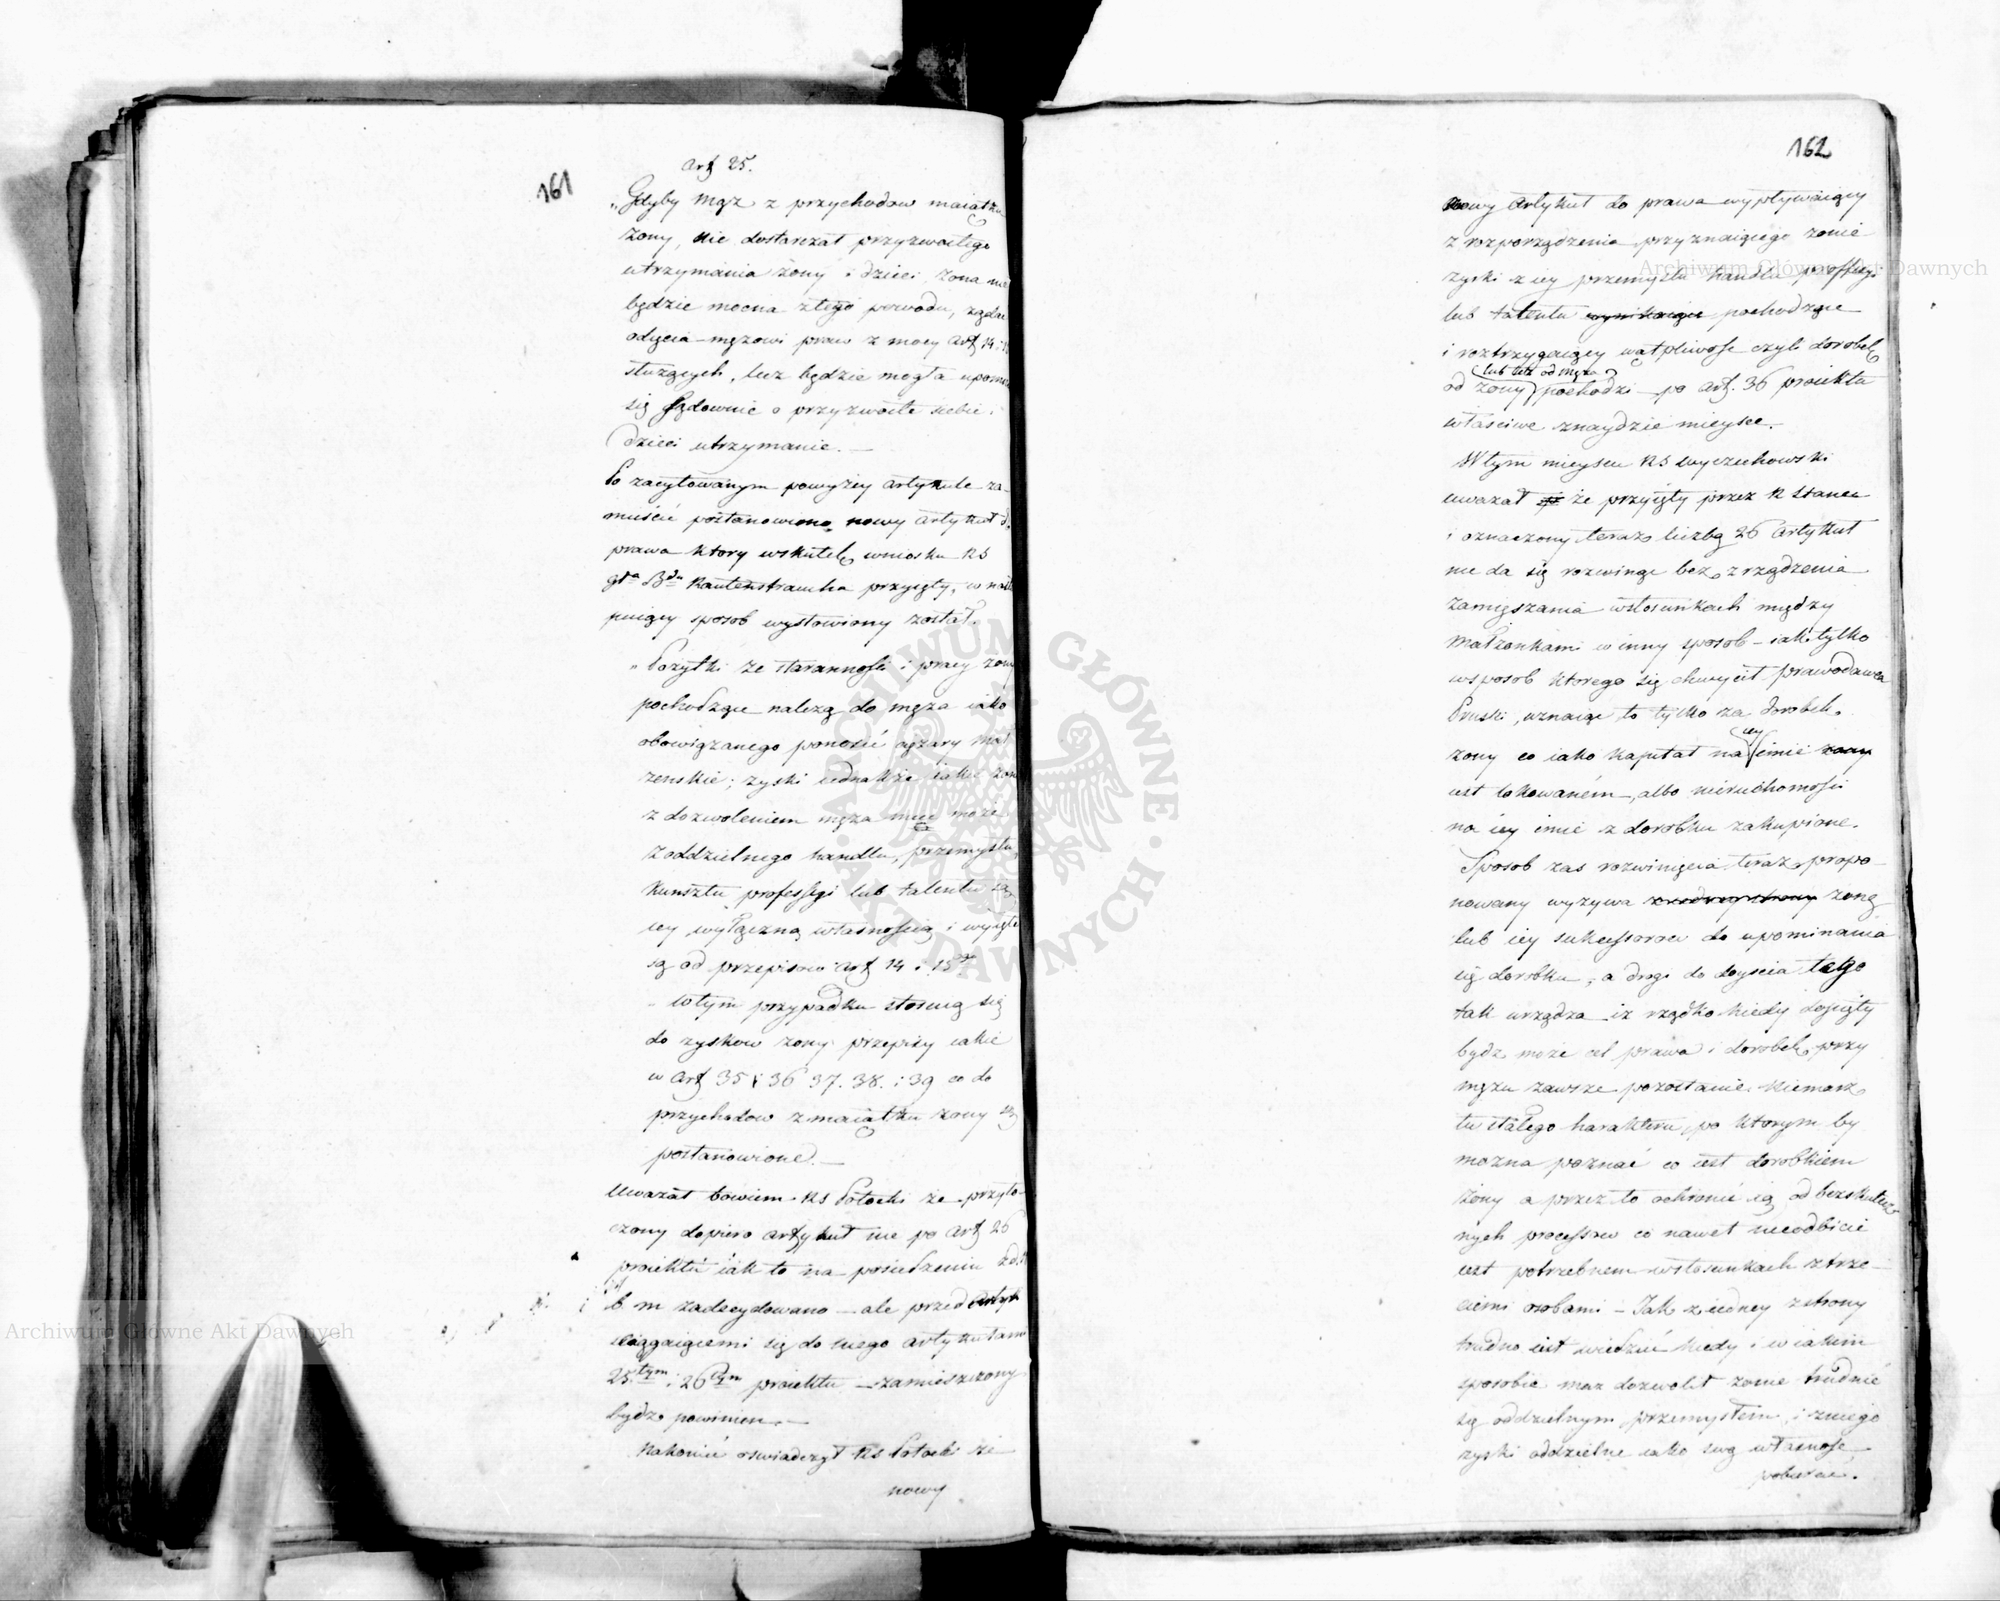 161
Art 25.
„Gdyby Mąż z przychodow maiątku
żony, nie dostarczał przyzwoitego
utrzymania żony i dzieci, żona nie
będzie mocna z tego powodu, żądać
odięcia mężowi praw z mocy Art 14 i 15
służących, lecz będzie mogła upomnieć
się sądownie o przyzwoite siebie i
dzieci utrzymanie. —
Po zacytowanym powyżey artykule za-
mieścić postanowiono nowy artykuł do
prawa ktory wskutek wniosku RS
Kautenstraucha przyięty, w nastę
puiący sposob wysłowiony został.
„Pożytki ze staranności i pracy żony
pochodzące należą do męża iako
obowiązanego ponosić ciężary mał
żenskie; zyski iednakże iakie żona
z dozwoleniem męża mieć może
z oddzielnego handlu, przemysłu,
kunsztu professyi lub talentu są
iey wyłączną własnością i wyięte
są od przepisow art 14 i 15go
„W tym przypadku stosuią się
do zyskow żony przepisy iakie
w Art 35 i 36 37. 38. i 39 co do
przychodow z maiątku żony są
postanowione. —
Uważał bowiem RS Potocki że przyto-
czony dopiero artykuł nie po Art 26
proiektu iak to na posiedzeniu
b m zadecydowano — ale przed
ściągaiącemi się do niego artykułami
25tym i 26tym proiektu — zamieszczony
bydź powinien. —
Nakoniec oswiadczył RS Potocki że
nowy
162
nowy Artykuł do prawa wypływaiący
z rozporządzenia przyznaiącego żonie
zyski z iey przemysłu handlu professyi
lub talentu wynikaiące pochodzące
i roztrzygaiący wątpliwość czyli dorobek
lub też od męża
od żony pochodzi — po art. 36 proiektu
właściwe znaydzie mieysce. —
W tym mieyscu RS Wyczechowski
uważał że przyięty przez R Stanu
i oznaczony teraz liczbą 26 artykuł
nie da się rozwinąć bez zrządzenia
zamięszania w stosunkach między
Małżonkami w inny sposob — iak tylko
w sposob ktorego się chwycił prawodawca
Pruski, uznaiąc to tylko za dorobek
iey
żony co iako kapitał na imie żony
iest lokowaném, albo nieruchomości
na iey imie z dorobku zakupione.
Sposob zas rozwinięcia teraz propo-
nowany wyzywa żonę
lub iey sukcessorow do upominania
się dorobku, a drogi do doyscia tego
tak urządza iż rządko kiedy dopięty
bydź może cel prawa i dorobek przy
mężu zawsze pozostanie. Niemasz
tu stałego harakteru, po ktorym by
można poznać co iest dorobkiem
żony a przez to ochronić ią od bezskutecz
nych processow co nawet nieodbicie
iest potrzebnem w stosunkach z trze-
ciemi osobami — Jak z iedney strony
trudno iest wiedzieć kiedy i w iakim
sposobie mąż dozwolił żonie trudnić
się oddzielnym przemysłem, i z niego
zyski oddzielne iako swą własność
pobierać.
Archiwum Główne Akt Dawnych
Archiwum Główne Akt Dawnych
ARCHIWUM GŁÓWNE · AKT DAWNYCH ·